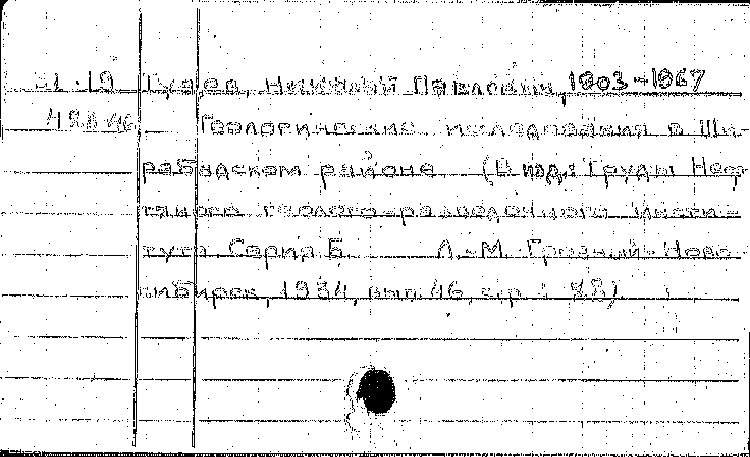 31-19 Туаев, Николай Павлович, 1903-1967
Геологические исследования в Ши-
рабадском районе. (В изд.: Труды Неф-
тяного геолого-разведочного инсти-
тута. Серия Б. Л.-М. Грозный-Ново-
сибирск, 1934, вып. 46, стр. 1-28).